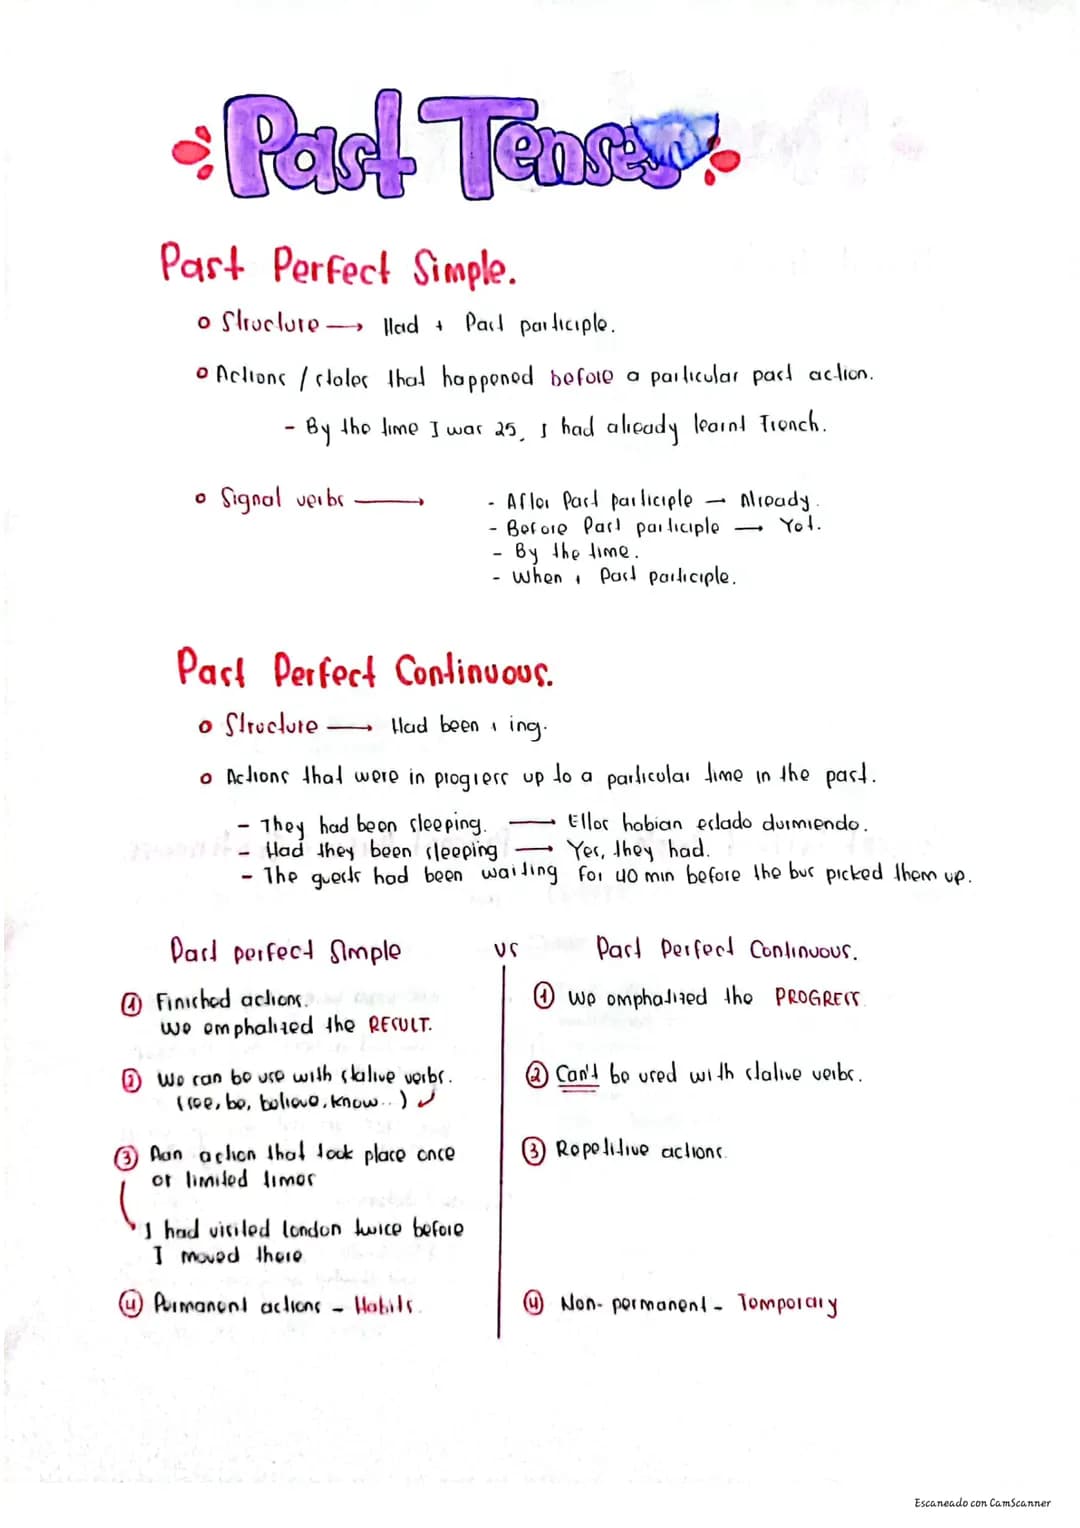 Past Tenses
Past Perfect Simple.
Structure → Had + Past participle.
Actions / states that happened before a particular past action.
- By the time I was 25, I had already learnt French.
Signal verbs →
- After Past participle → Already.
- Before Past participle → Yet.
- By the time.
- When + Past participle.
Past Perfect Continuous.
Structure → Had been + ing.
Actions that were in progress up to a particular time in the past.
- They had been sleeping. → Ellos habian estado durmiendo.
- Had they been sleeping → Yes, they had.
- The guests had been waiting for 40 min before the bus picked them up.
Past perfect Simple vs Past Perfect Continuous.
① Finished actions.
We emphatized the RESULT.
② We can be use with stative verbs.
(see, be, believe, know...)
③ Aan action that took place once
or limited times
I had visited london twice before
I moved there
④ Permanent actions - Habits.
① We emphatized the PROGRESS.
② Can't be used with stative verbs.
③ Repetitive actions.
④ Non-permanent - Temporary
Escaneado con CamScanner